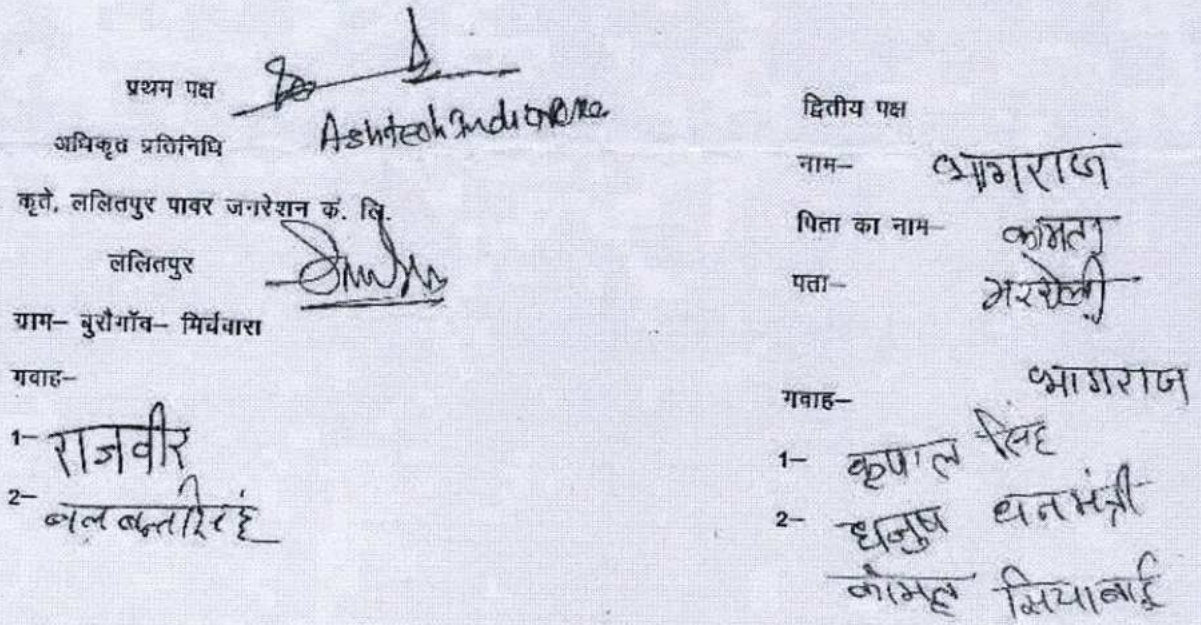 प्रथम पक्ष
अधिकृत प्रतिनिधि
कृते, ललितपुर पावर जनरेशन कं. लि.
ललितपुर
ग्राम– बुरौगॉव– मिर्चवारा
गवाह–
1– राजवीर
2– बलबन्तसिंह
द्वितीय पक्ष
नाम– भागराज
पिता का नाम– कामता
पता–
भागराज
गवाह–
1– कृपाल सिंह
2– धनुष धनमंत्री
सियाबाई